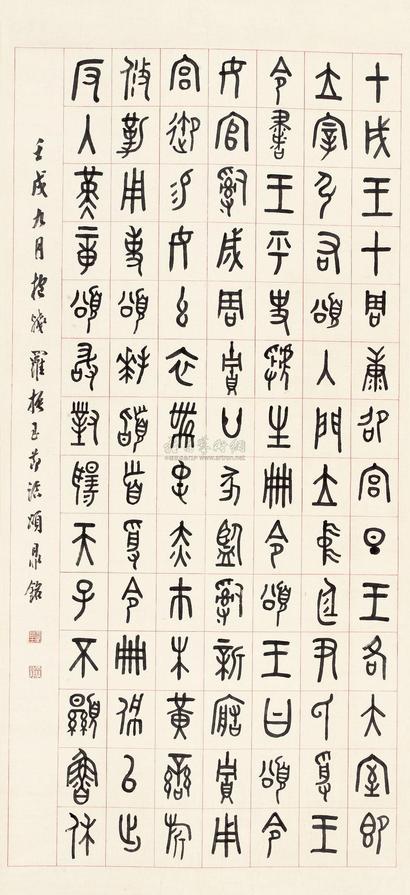 甲戌王才周康卲宮旦王各大室即
立宰引右頌入門立中廷尹氏受王
令書王乎史虢生冊令頌王曰頌令
女官𤔲成周貯廿家監𤔲新造貯用
宮御易女玄衣黹屯赤巿朱黃䜌旂
攸勒用事頌拜𩒨首受令冊佩以出
反入堇章頌敢對揚天子不顯魯休
壬戌九月抱殘羅振玉節臨頌鼎銘